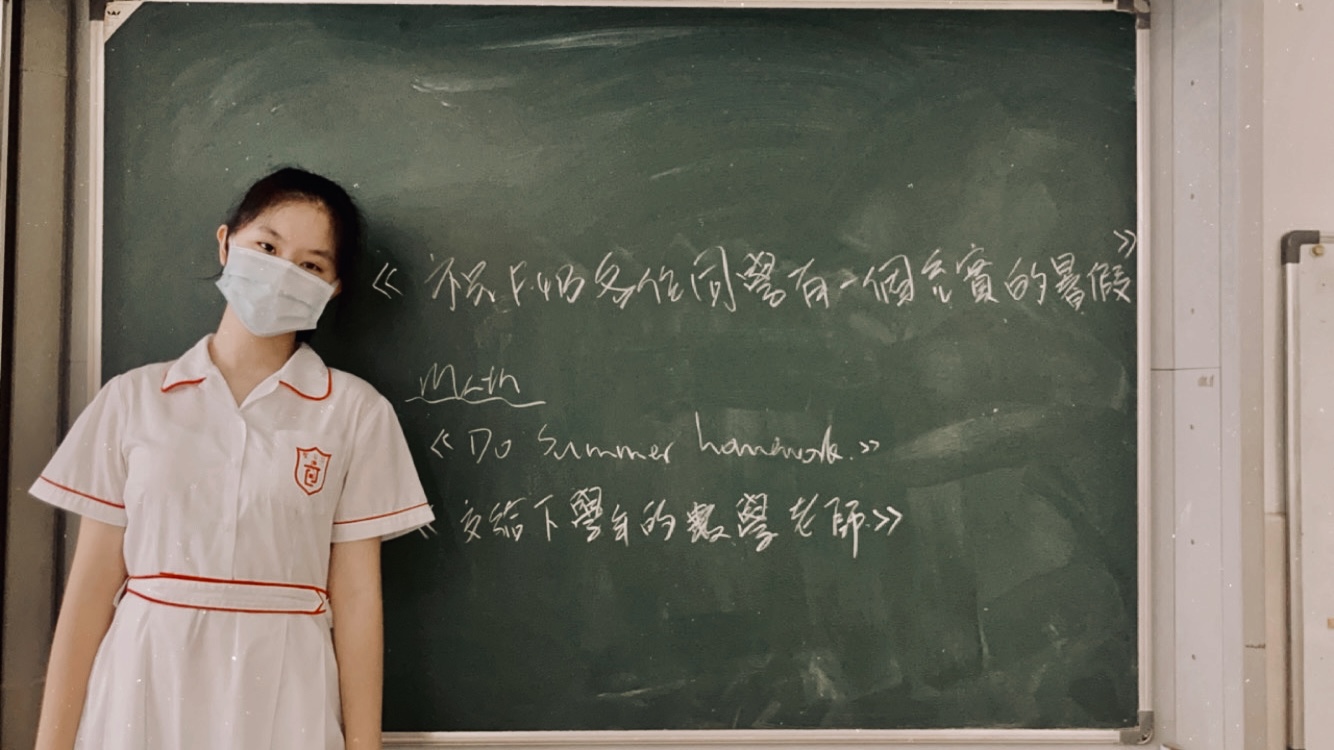 《祝F4B各位同學有一個充實的暑假》
Math
《Do Summer homework.》
《交給下學年的數學老師》